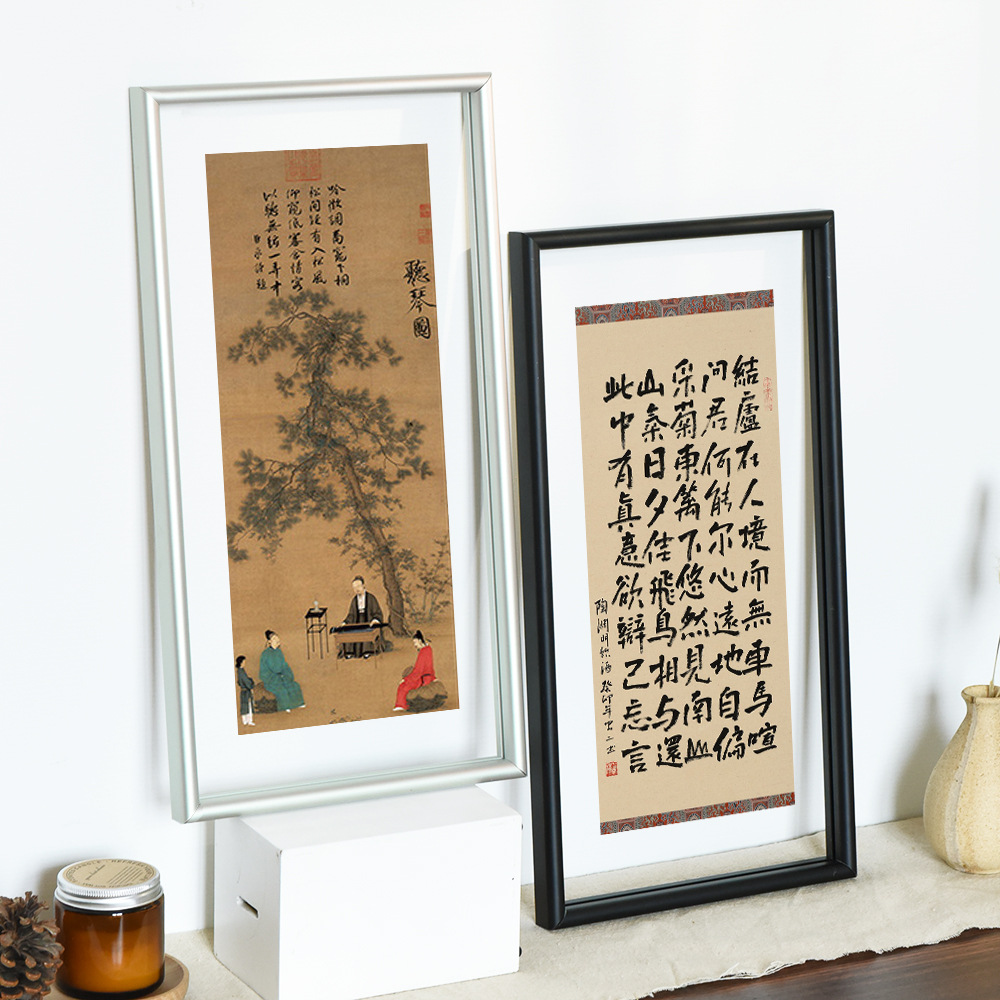 聽琴圖
吟徵調商竈下桐
松間疑有入松風
仰窺低審含情客
以聽無絃一弄中
臣京謹題
結廬在人境而無車馬喧
問君何能尔心遠地自偏
采菊東籬下悠然見南山
山氣日夕佳飛鳥相与還
此中有眞意欲辯已忘言
陶淵明飲酒 癸卯年